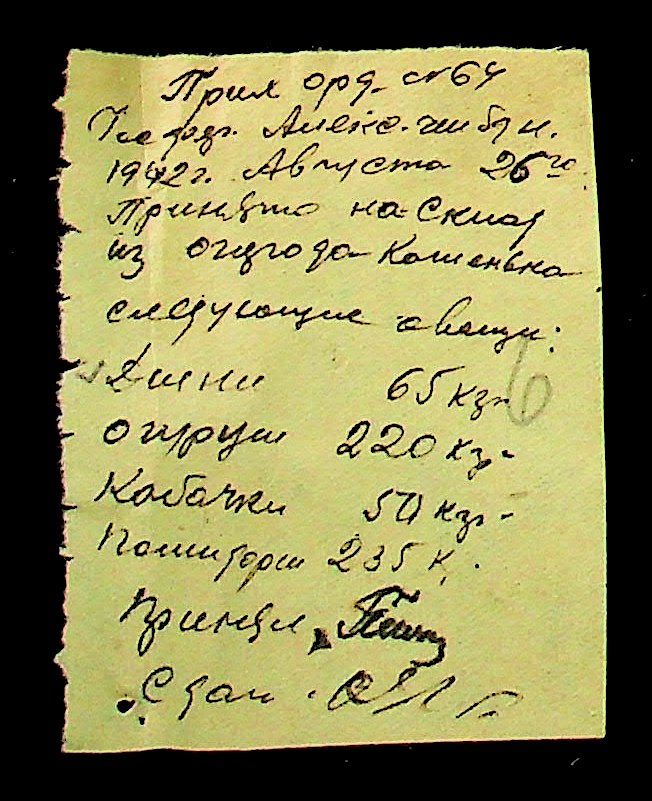 Прих орд. № 64
1942 г. Августа 26го
Принято на склад
из огорода
следующие овощи:
Дыни 65 кг.
огурцы 220 кг.
Кабачки 50 кг.
Помидоры 235 к.
Принял
Сдал
6